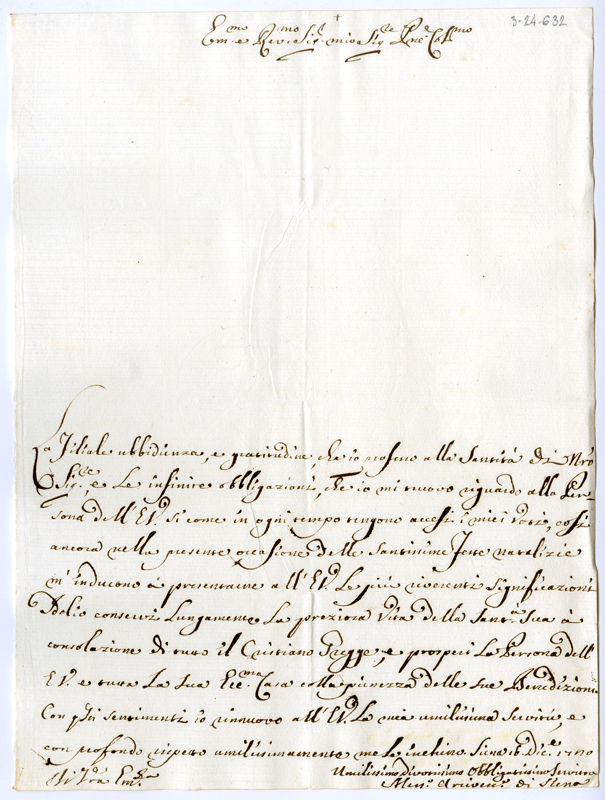 3-24-632
Em.mo e Rev.mo Sig.r mio Sig.re e Pne Col.mo
La Filiale ubbidienza, e gratitudine, che io professo alla Santità di Nro
Sig.re, e Le infinite obbligazioni, che io mi truovo riguardo alla Per
sona dell'E.V. si come in ogni tempo tengono accesi i miei voti, così
ancora nella presente occasione delle Santissime Feste natalizie
m'inducono à presentarne all'E.V. Le più riverenti significazioni
Iddio conservi Lungamente La preziosa Vita della Sant.à Sua à
consolazione di tutto il Cristiano Gregge, e prosperi La Persona dell'
E.V. e tutta La Sua Ecc.ma Casa colla pienezza delle sue Benedizioni
Con q.sti sentimenti io rinnuovo all'E.V. Le mia umilissima servitù, e
con profondo rispetto umilissimamente me Le inchino Siena Dic.e
di V.ra Em.za
Umilissimo Divotissimo Obbligatissimo Servitore
Aless.o Arcivesc.o di Siena